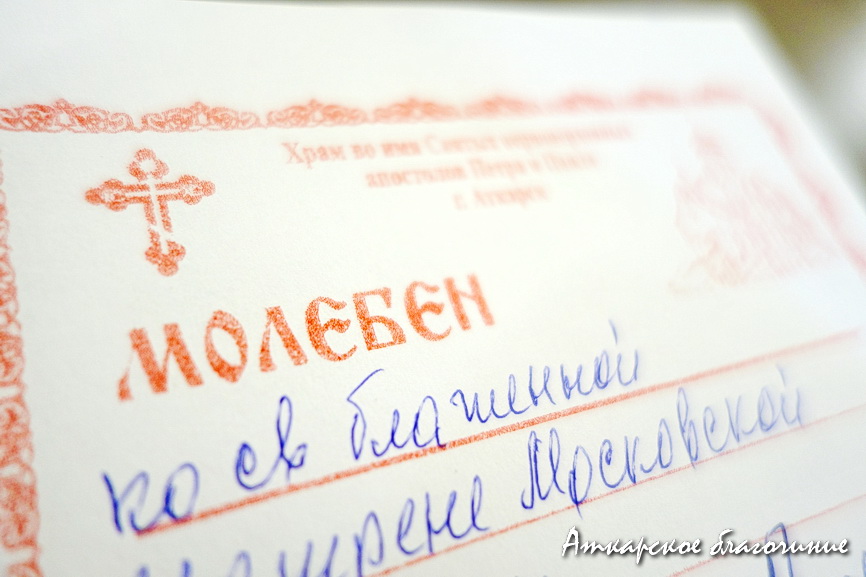 Храм во имя Святых первоверховных
апостолов Петра и Павла
г. Аткарск
МОЛЕБЕН
ко св блаженной
Матрене Московской
Аткарское благочиние